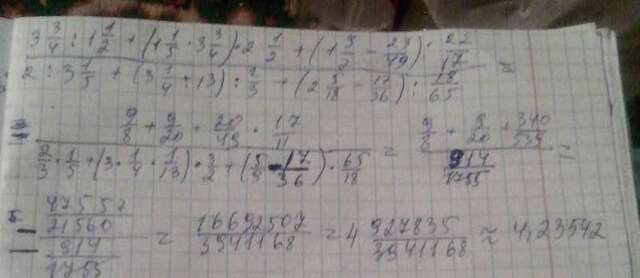 3 3/4 : 1 1/2 + (1 1/5 · 3 3/4) · 2 1/2 + (1 3/2 - 23/49) · 22/17
2 : 3 1/5 + (3 1/4 : 13) : 2/3 + (2 5/18 - 17/36) : 18/65 =
= 9/8 + 9/20 + 20/49 · 17/11
2/3 · 1/5 + (3 · 1/4 · 1/13) · 3/2 + (5/3 - 17/36) · 65/18 = 9/8 + 9/20 + 340/539
914/1755 =
47557/21560
914/1755 = 16692507/3941168 = 4 927835/3941168 ≈ 4,23542